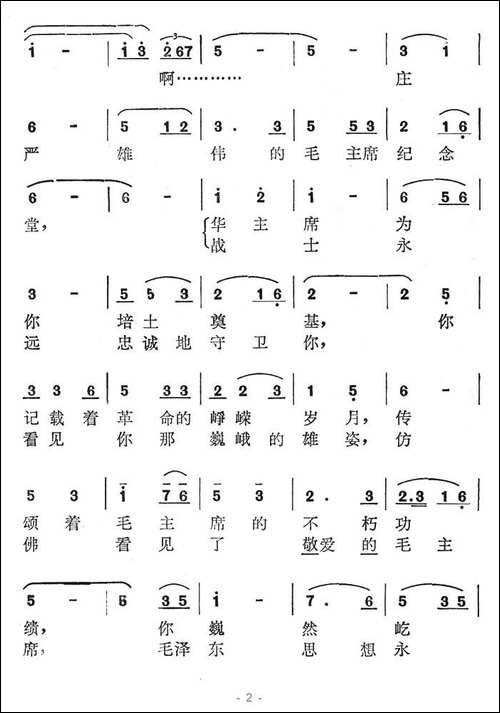 i - | i 3 2 67 | 5 - | 5 - | 3 i |
啊………… 庄
6 - | 5 1 2 | 3 . 3 | 5 5 3 | 2 1 6 |
严 雄 伟 的 毛 主席 纪 念
6 - | 6 - | i 2 | i - | 6 5 6 |
堂, 华 主 席 为
战 士 永
3 - | 5 5 3 | 2 1 6 | 2 - | 2 5 |
你 培 土 奠 基, 你
远 忠 诚 地 守 卫 你,
3 3 6 | 5 5 3 | 2 2 3 | 1 5 | 6 - |
记 载 着 革 命 的 峥 嵘 岁 月, 传
看 见 你 那 巍 峨 的 雄 姿, 仿
5 3 | i 7 6 | 5 3 | 2 . 3 | 2.3 1 6 |
颂 着 毛 主 席 的 不 朽 功
佛 看 见 了 敬爱 的 毛 主
5 - | 6 3 5 | i - | 7 . 6 | 5 3 5 |
绩, 你 巍 然 屹
席, 毛泽 东 思 想 永
- 2 -